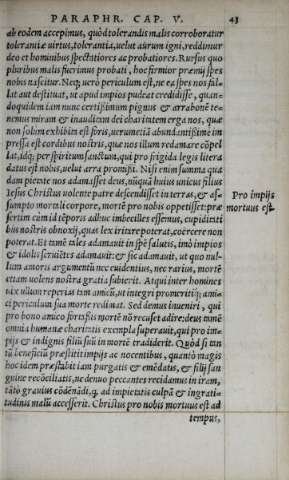 PARAPHR. CAP. V. 43
ab eodem accepimus, quòd tolerandis malis corroboratur
tolerantiæ uirtus, tolerantia, uelut aurum igni, reddimur
deo et hominibus spectatiores ac probatiores. Rursus quo
pluribus malis fuerimus probati, hoc firmior præmij spes
nobis nascitur. Neq; uerò periculum est, ne ea spes nos fal-
lat aut destituat, ut apud impios pudeat credidisse, quan-
doquidem iam nunc certissimum pignus & arrabonē te-
nemus miram & inauditam dei charitatem erga nos, quæ
non solùm exhibita est foris, uerumetiā abundantissime im
pressa est cordibus nostris, quæ nos illum redamare cōpel
lat, idq; per spiritum sanctum, qui pro frigida legis litera
datus est nobis, uelut arra promissi. Nisi enim summa quæ
dam pietate nos adamasset deus, nūquā huius unicus filius
Iesus Christus uolente patre descendisset in terras, & as-
sumpto mortali corpore, mortē pro nobis oppetisset: præ
sertim cùm id tēporis adhuc imbecilles essemus, cupiditati
bus nostris obnoxij, quas lex irritare poterat, coërcere non
poterat. Et tamē tales adamauit in spē salutis, imò impios
& idolis seruiētes adamauit: & sic adamauit, ut quo nul-
lum amoris argumentū nec euidentius, nec rarius, mortē
uolens nostra gratia subierit. Atqui inter homines
uix ullum reperias tam amicū, ut integri promeritiq; ami-
ci periculum sua morte redimat. Sed demus inueniri, qui
pro bono amico fortassis mortē nō recuset adire: deus tamē
omnia humanæ charitatis exempla superauit, qui pro im-
pijs & indignis filiū suū in mortē tradiderit. Quòd si tan
tū beneficiū præstitit impijs ac nocentibus, quantò magis
hoc idem præstabit iam purgatis & emēdatis, & filij san
guine recōciliatis, ne denuo peccantes recidamus in iram,
tātò grauius cōdēnādi, q. ad impietatis culpā & ingrati-
tudinis malū accesserit. Christus pro nobis mortuus est ad
tempus,
Pro impijs
mortuus est.